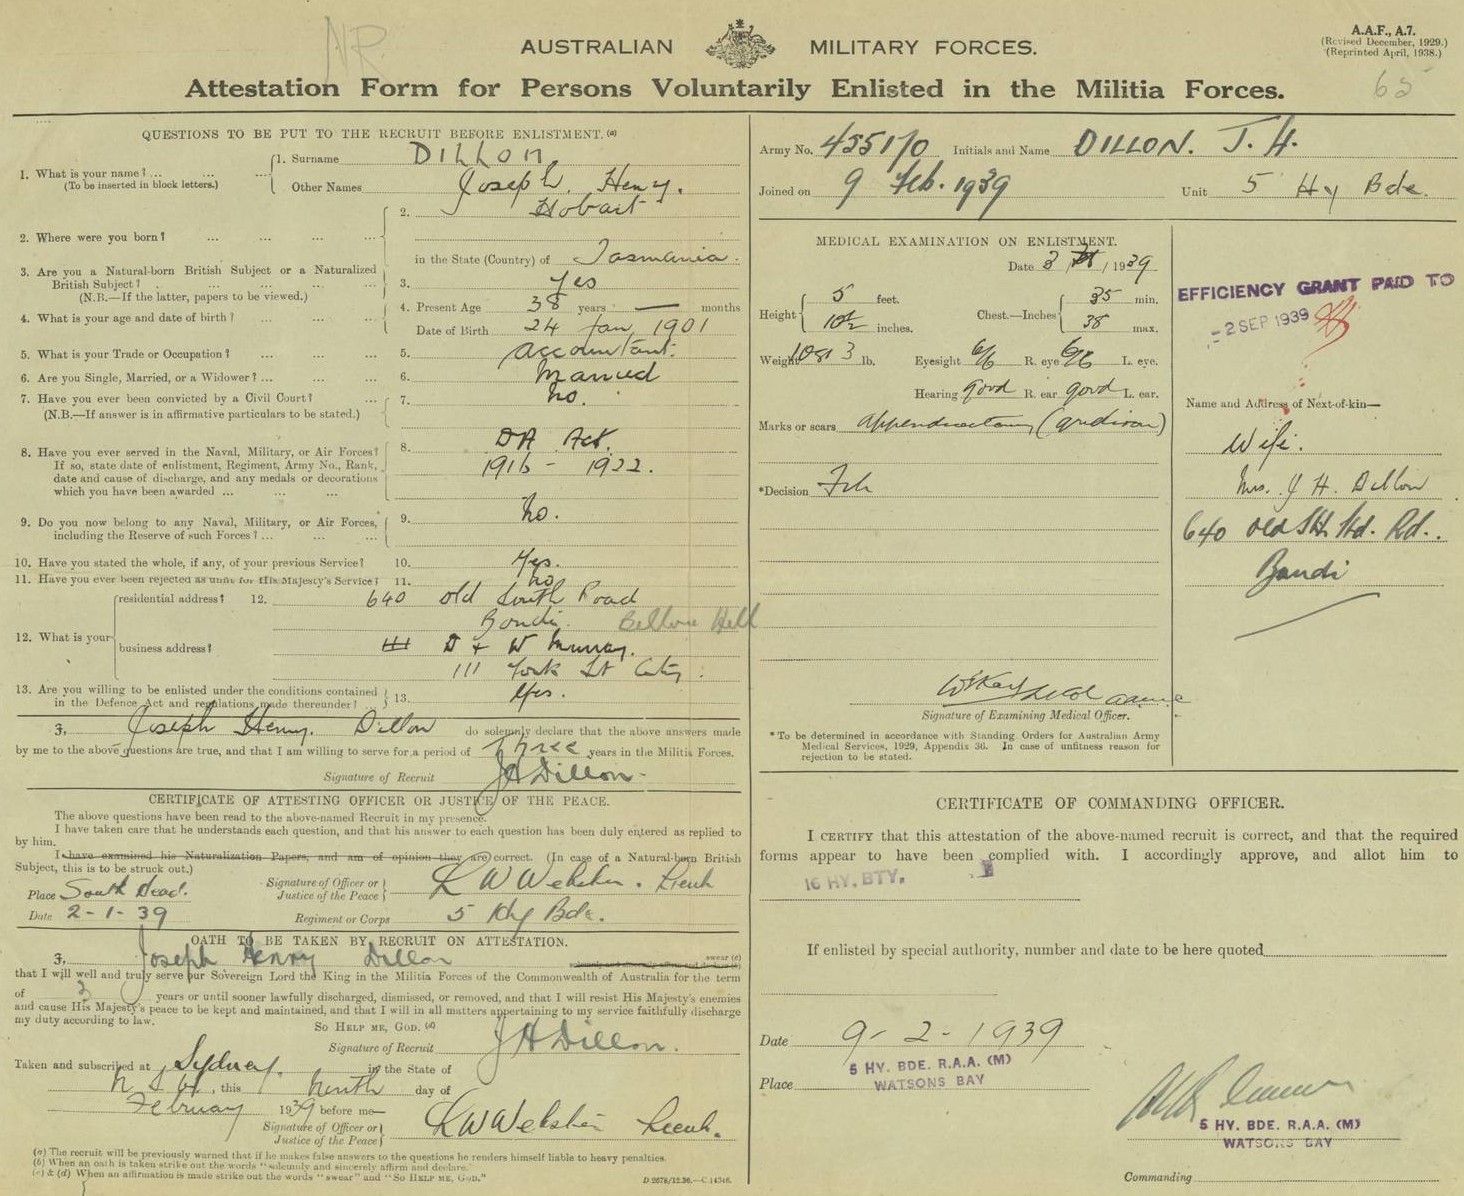 NR
AUSTRALIAN MILITARY FORCES.
A.A.F., A.7.
(Revised December, 1929.)
(Reprinted April, 1938.)
65
Attestation Form for Persons Voluntarily Enlisted in the Militia Forces.
QUESTIONS TO BE PUT TO THE RECRUIT BEFORE ENLISTMENT.(a)
1. What is your name? ... ... ...
(To be inserted in block letters.)
1. Surname DILLON
Other Names Joseph. Henry.
2. Where were you born? ... ... ... ...
2. Hobart
in the State (Country) of Tasmania.
3. Are you a Natural-born British Subject or a Naturalized
British Subject? . ... ... ... ...
(N.B.—If the latter, papers to be viewed.)
3. Yes
4. What is your age and date of birth? ... ...
4. Present Age 38 years — months
Date of Birth 24 Jan 1901
5. What is your Trade or Occupation? ... ...
5. accountant.
6. Are you Single, Married, or a Widower? ... ... ...
6. Married
7. Have you ever been convicted by a Civil Court? ...
(N.B.—If answer is in affirmative particulars to be stated.)
7. No.
8. Have you ever served in the Naval, Military, or Air Forces?
If so, state date of enlistment, Regiment, Army No., Rank,
date and cause of discharge, and any medals or decorations
which you have been awarded ... ... ...
8. DA Act.
1916 - 1922.
9. Do you now belong to any Naval, Military, or Air Forces,
including the Reserve of such Forces? ... ... ...
9. No.
10. Have you stated the whole, if any, of your previous Service? 10. Yes.
11. Have you ever been rejected as unfit for His Majesty's Service? 11. No
12. What is your
residential address? 12. 640 Old South Road
Bondi. Bellvue Hill
business address? 111 D & W Murray.
111 York St City.
13. Are you willing to be enlisted under the conditions contained
in the Defence Act and regulations made thereunder? ..
13. Yes.
I, Joseph Henry Dillon do solemnly declare that the above answers made
by me to the above questions are true, and that I am willing to serve for a period of Three years in the Militia Forces.
Signature of Recruit JH Dillon
CERTIFICATE OF ATTESTING OFFICER OR JUSTICE OF THE PEACE.
The above questions have been read to the above-named Recruit in my presence.
I have taken care that he understands each question, and that his answer to each question has been duly entered as replied to
by him.
I have examined his Naturalization Papers, and am of opinion they are correct. (In case of a Natural-born British
Subject, this is to be struck out.)
Place South Head.
Signature of Officer or
Justice of the Peace
K W Webster. Lieut
Date 2-1-39
Regiment or Corps 5 Hy Bde.
OATH TO BE TAKEN BY RECRUIT ON ATTESTATION.
I, Joseph Henry Dillon swear (c)
solemnly and sincerely affirm and declare (b)
that I will well and truly serve our Sovereign Lord the King in the Militia Forces of the Commonwealth of Australia for the term
of 3 years or until sooner lawfully discharged, dismissed, or removed, and that I will resist His Majesty's enemies
and cause His Majesty's peace to be kept and maintained, and that I will in all matters appertaining to my service faithfully discharge
my duty according to law.
SO HELP ME, GOD. (d)
Signature of Recruit JH Dillon.
Taken and subscribed at Sydney. in the State of
N S W, this Ninth day of
February 1939 before me—
Signature of Officer or
Justice of the Peace
K W Webster Lieut.
(a) The recruit will be previously warned that if he makes false answers to the questions he renders himself liable to heavy penalties.
(b) When an oath is taken strike out the words "solemnly and sincerely affirm and declare."
(c) & (d) When an affirmation is made strike out the words "swear" and "SO HELP ME, GOD."
D 2678/12.36.—C.14546.
Army No. 455170 Initials and Name DILLON. J. H.
Joined on 9 Feb. 1939 Unit 5 Hy Bde.
MEDICAL EXAMINATION ON ENLISTMENT.
Date 3 / / 1939
Height 5 feet.
10½ inches.
Chest.—Inches 35 min.
38 max.
Weight 10st 3 lb. Eyesight 6/6 R. eye 6/6 L. eye.
Hearing good R. ear good L. ear.
Marks or scars appendicectomy (gridiron)
*Decision Fit
Signature of Examining Medical Officer.
* To be determined in accordance with Standing Orders for Australian Army
Medical Services, 1929, Appendix 36. In case of unfitness reason for
rejection to be stated.
EFFICIENCY GRANT PAID TO
- 2 SEP 1939
Name and Address of Next-of-kin—
Wife.
Mrs. J H. Dillon
640 Old Sth Hd. Rd..
Bondi
CERTIFICATE OF COMMANDING OFFICER.
I CERTIFY that this attestation of the above-named recruit is correct, and that the required
forms appear to have been complied with. I accordingly approve, and allot him to
16 HY. BTY.
If enlisted by special authority, number and date to be here quoted
Date 9-2-1939
Place 5 HY. BDE. R.A.A. (M)
WATSONS BAY
5 HY. BDE. R.A.A. (M)
WATSONS BAY
Commanding